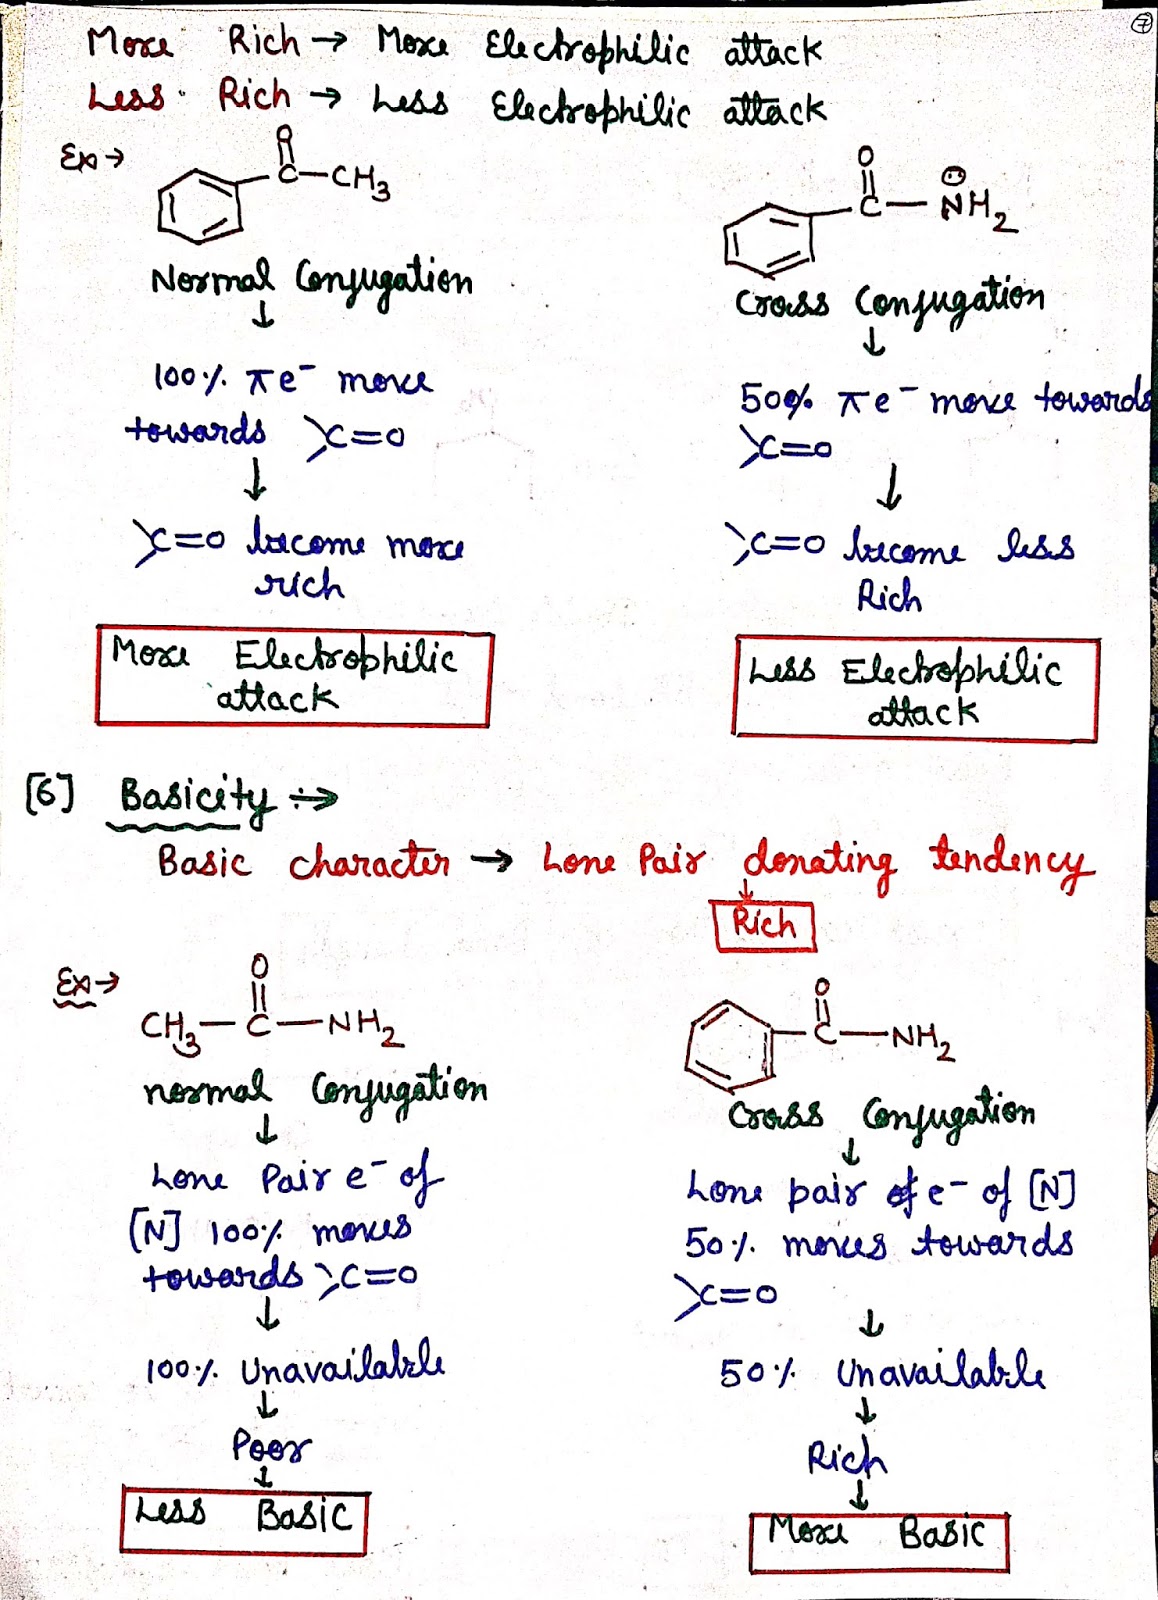 7
More Rich → More Electrophilic attack
Less Rich → Less Electrophilic attack
Ex →
O
C—CH3
Normal Conjugation
↓
100% πe⁻ move
towards >C=O
↓
>C=O become more
rich
More Electrophilic
attack
O
C—NH2
Cross Conjugation
↓
50% πe⁻ move towards
>C=O
↓
>C=O become less
Rich
Less Electrophilic
attack
[6] Basicity :→
Basic character → Lone Pair donating tendency
↓
Rich
Ex →
O
CH3—C—NH2
normal Conjugation
↓
Lone Pair e⁻ of
[N] 100% moves
towards >C=O
↓
100% Unavailable
↓
Poor
↓
Less Basic
O
C—NH2
Cross Conjugation
↓
Lone pair of e⁻ of [N]
50% moves towards
>C=O
↓
50% Unavailable
↓
Rich
↓
More Basic